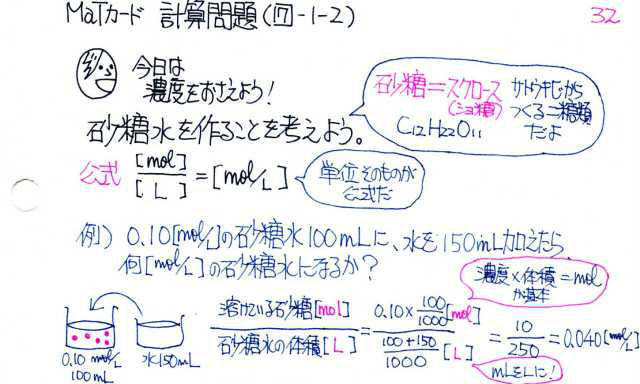 MaTカード 計算問題(17-1-2)
32
今日は
濃度をおさえよう!
砂糖=スクロース サトウキビから
(ショ糖) つくる二糖類
C12H22O11 だよ
砂糖水を作ることを考えよう。
公式 [mol]/[L] = [mol/L]
単位そのものが
公式だ
例) 0.10[mol/L]の砂糖水100mLに、水を150mL加えたら、
何[mol/L]の砂糖水になるか?
濃度×体積=mol
が基本
溶けている砂糖[mol]/砂糖水の体積[L] = 0.10×100/1000[mol]/(100+150)/1000[L] = 10/250 = 0.040[mol/L]
0.10 mol/L
100mL
水150mL
mLをLに!